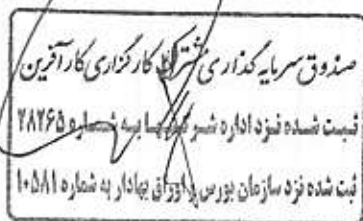 صندوق سرمایه گذاری مشترک کارگزاری کارآفرین
ثبت شده نزد اداره ثبت شرکتها به شماره ۲۸۲۶۵
ثبت شده نزد سازمان بورس و اوراق بهادار به شماره ۱۰۵۸۱